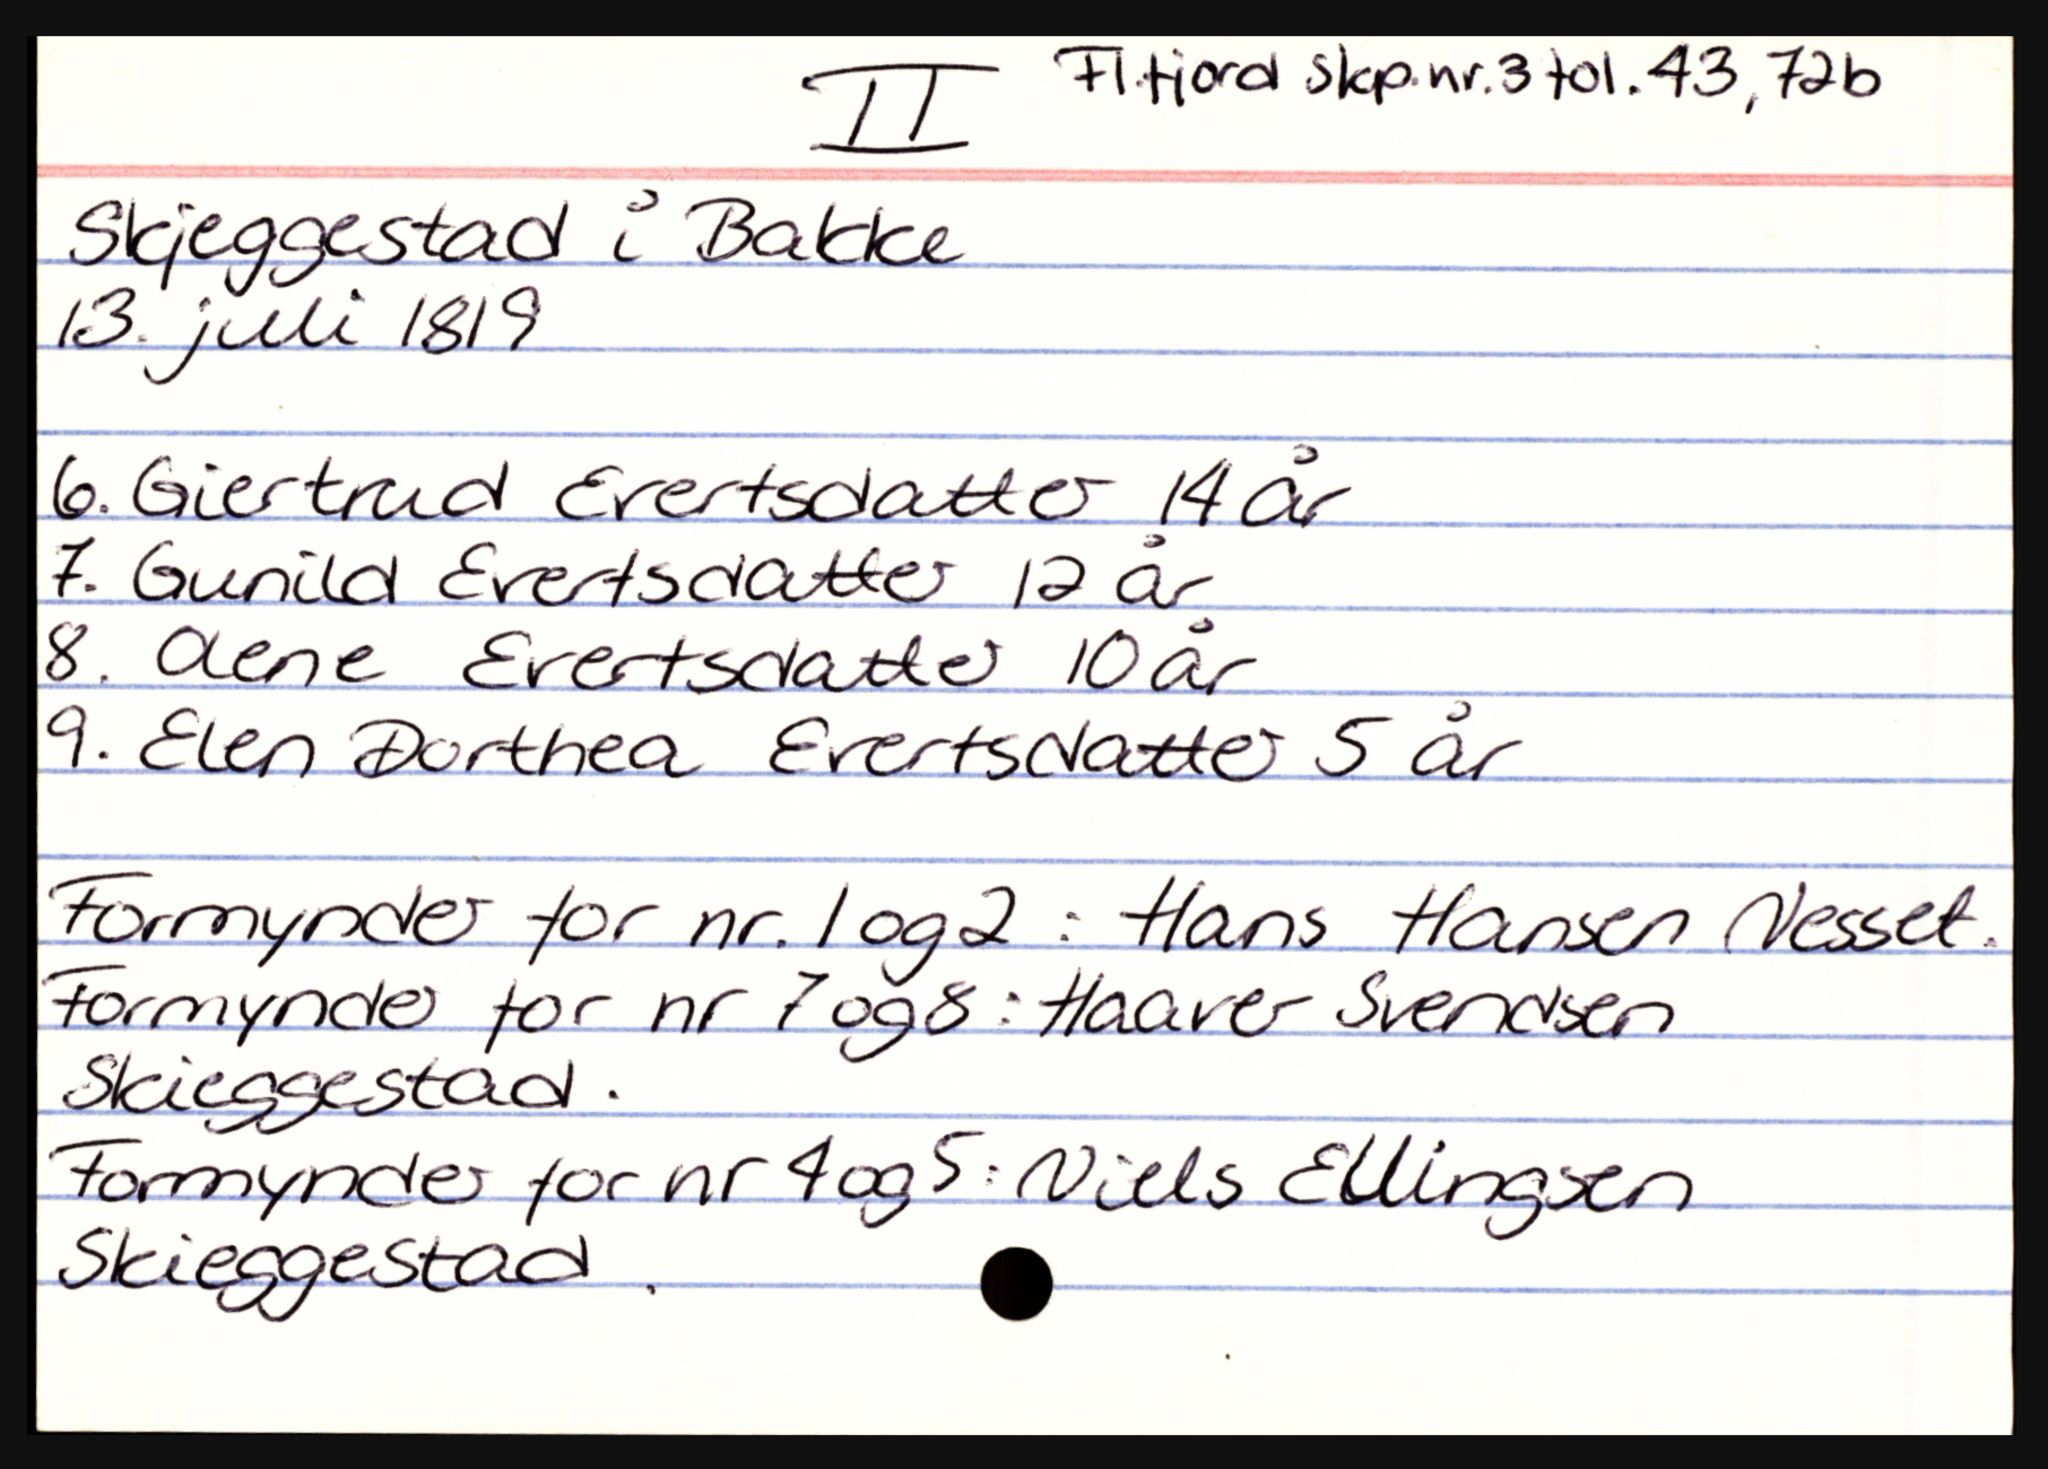 II Fl.fjord skp.nr.3 fol. 43, 72b
Skjeggestad i Bakke
13. juli 1819
6. Giertrud Evertsdatter 14 år
7. Gunild Evertsdatter 12 år
8. Aene Evertsdatter 10 år
9. Elen Dorthea Evertsdatter 5 år
Formynder for nr. 1 og 2 : Hans Hansen Nesset.
Formynder for nr 7 og 8 : Haaver Svendsen
Skieggestad.
Formynder for nr 4 og 5 : Niels Ellingsen
Skieggestad.